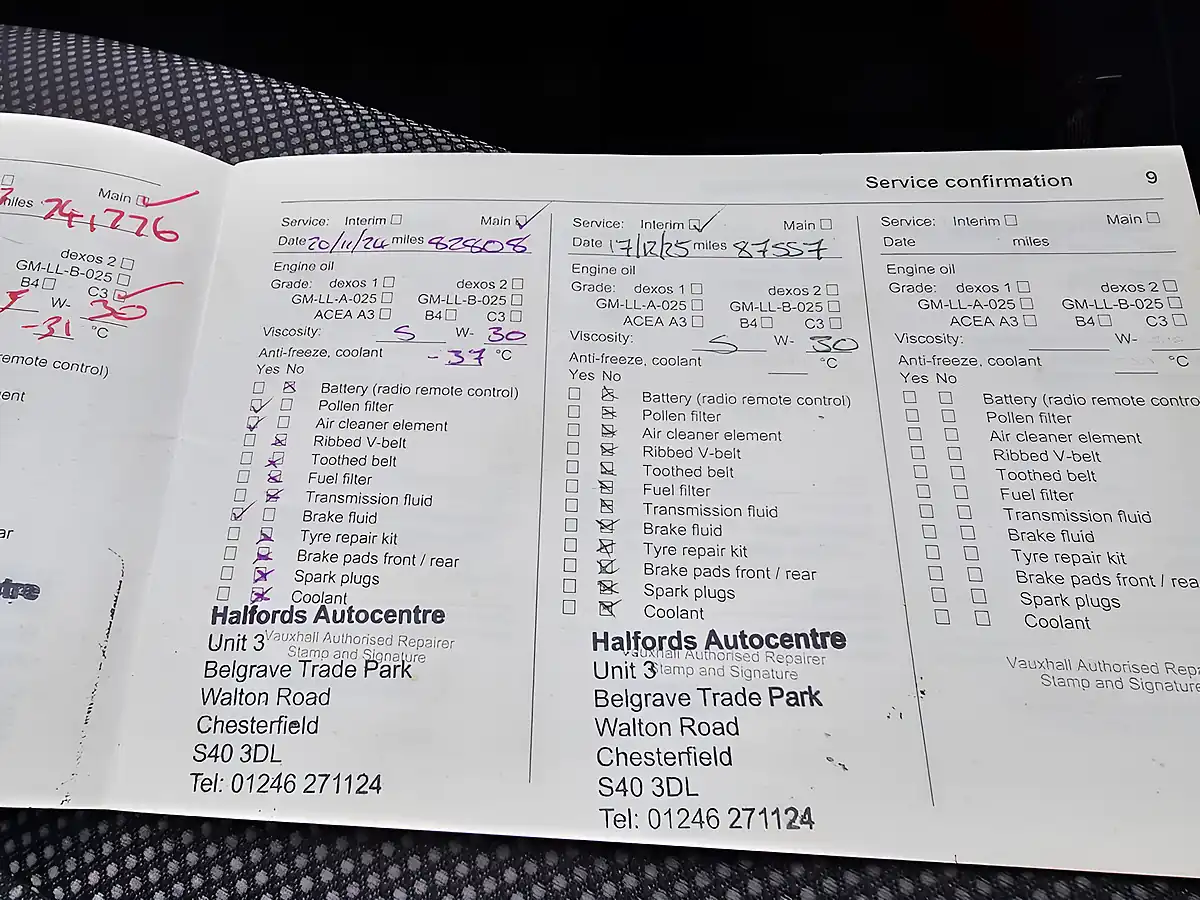 Main
miles 74,776
dexos 2
GM-LL-B-025
B4 C3
W- 30
-31 °C
remote control)
Service confirmation 9
Service: Interim Main
Date 20/11/24 miles 82808
Engine oil
Grade: dexos 1 dexos 2
GM-LL-A-025 GM-LL-B-025
ACEA A3 B4 C3
Viscosity: 5 W- 30
Anti-freeze, coolant -37 °C
Yes No
Battery (radio remote control)
Pollen filter
Air cleaner element
Ribbed V-belt
Toothed belt
Fuel filter
Transmission fluid
Brake fluid
Tyre repair kit
Brake pads front / rear
Spark plugs
Coolant
Halfords Autocentre
Vauxhall Authorised Repairer
Stamp and Signature
Unit 3
Belgrave Trade Park
Walton Road
Chesterfield
S40 3DL
Tel: 01246 271124
Service: Interim Main
Date 17/12/25 miles 87557
Engine oil
Grade: dexos 1 dexos 2
GM-LL-A-025 GM-LL-B-025
ACEA A3 B4 C3
Viscosity: 5 W- 30
Anti-freeze, coolant °C
Yes No
Battery (radio remote control)
Pollen filter
Air cleaner element
Ribbed V-belt
Toothed belt
Fuel filter
Transmission fluid
Brake fluid
Tyre repair kit
Brake pads front / rear
Spark plugs
Coolant
Halfords Autocentre
Vauxhall Authorised Repairer
Stamp and Signature
Unit 3
Belgrave Trade Park
Walton Road
Chesterfield
S40 3DL
Tel: 01246 271124
Service: Interim Main
Date miles
Engine oil
Grade: dexos 1 dexos 2
GM-LL-A-025 GM-LL-B-025
ACEA A3 B4 C3
Viscosity: W-
Anti-freeze, coolant °C
Yes No
Battery (radio remote contro
Pollen filter
Air cleaner element
Ribbed V-belt
Toothed belt
Fuel filter
Transmission fluid
Brake fluid
Tyre repair kit
Brake pads front / rea
Spark plugs
Coolant
Vauxhall Authorised Repa
Stamp and Signature